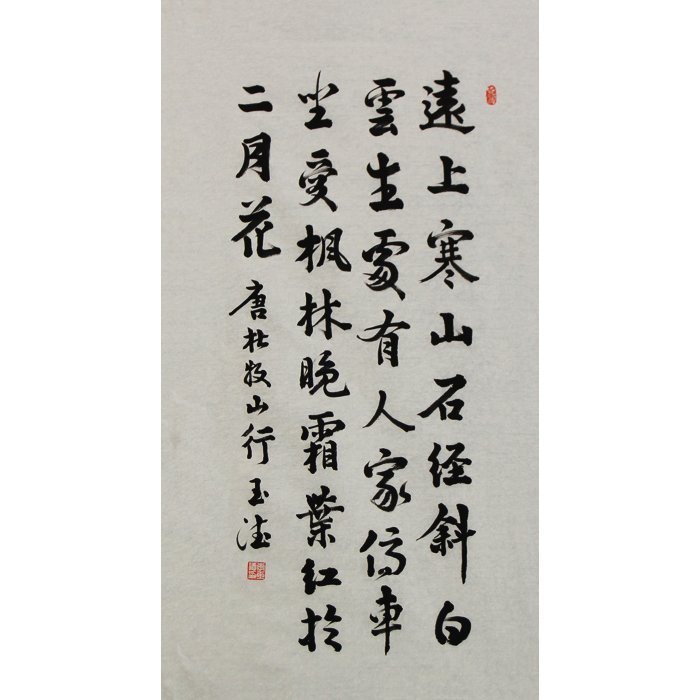 遠上寒山石经斜白
雲生處有人家停車
坐爱枫林晚霜葉红於
二月花 唐杜牧山行 玉